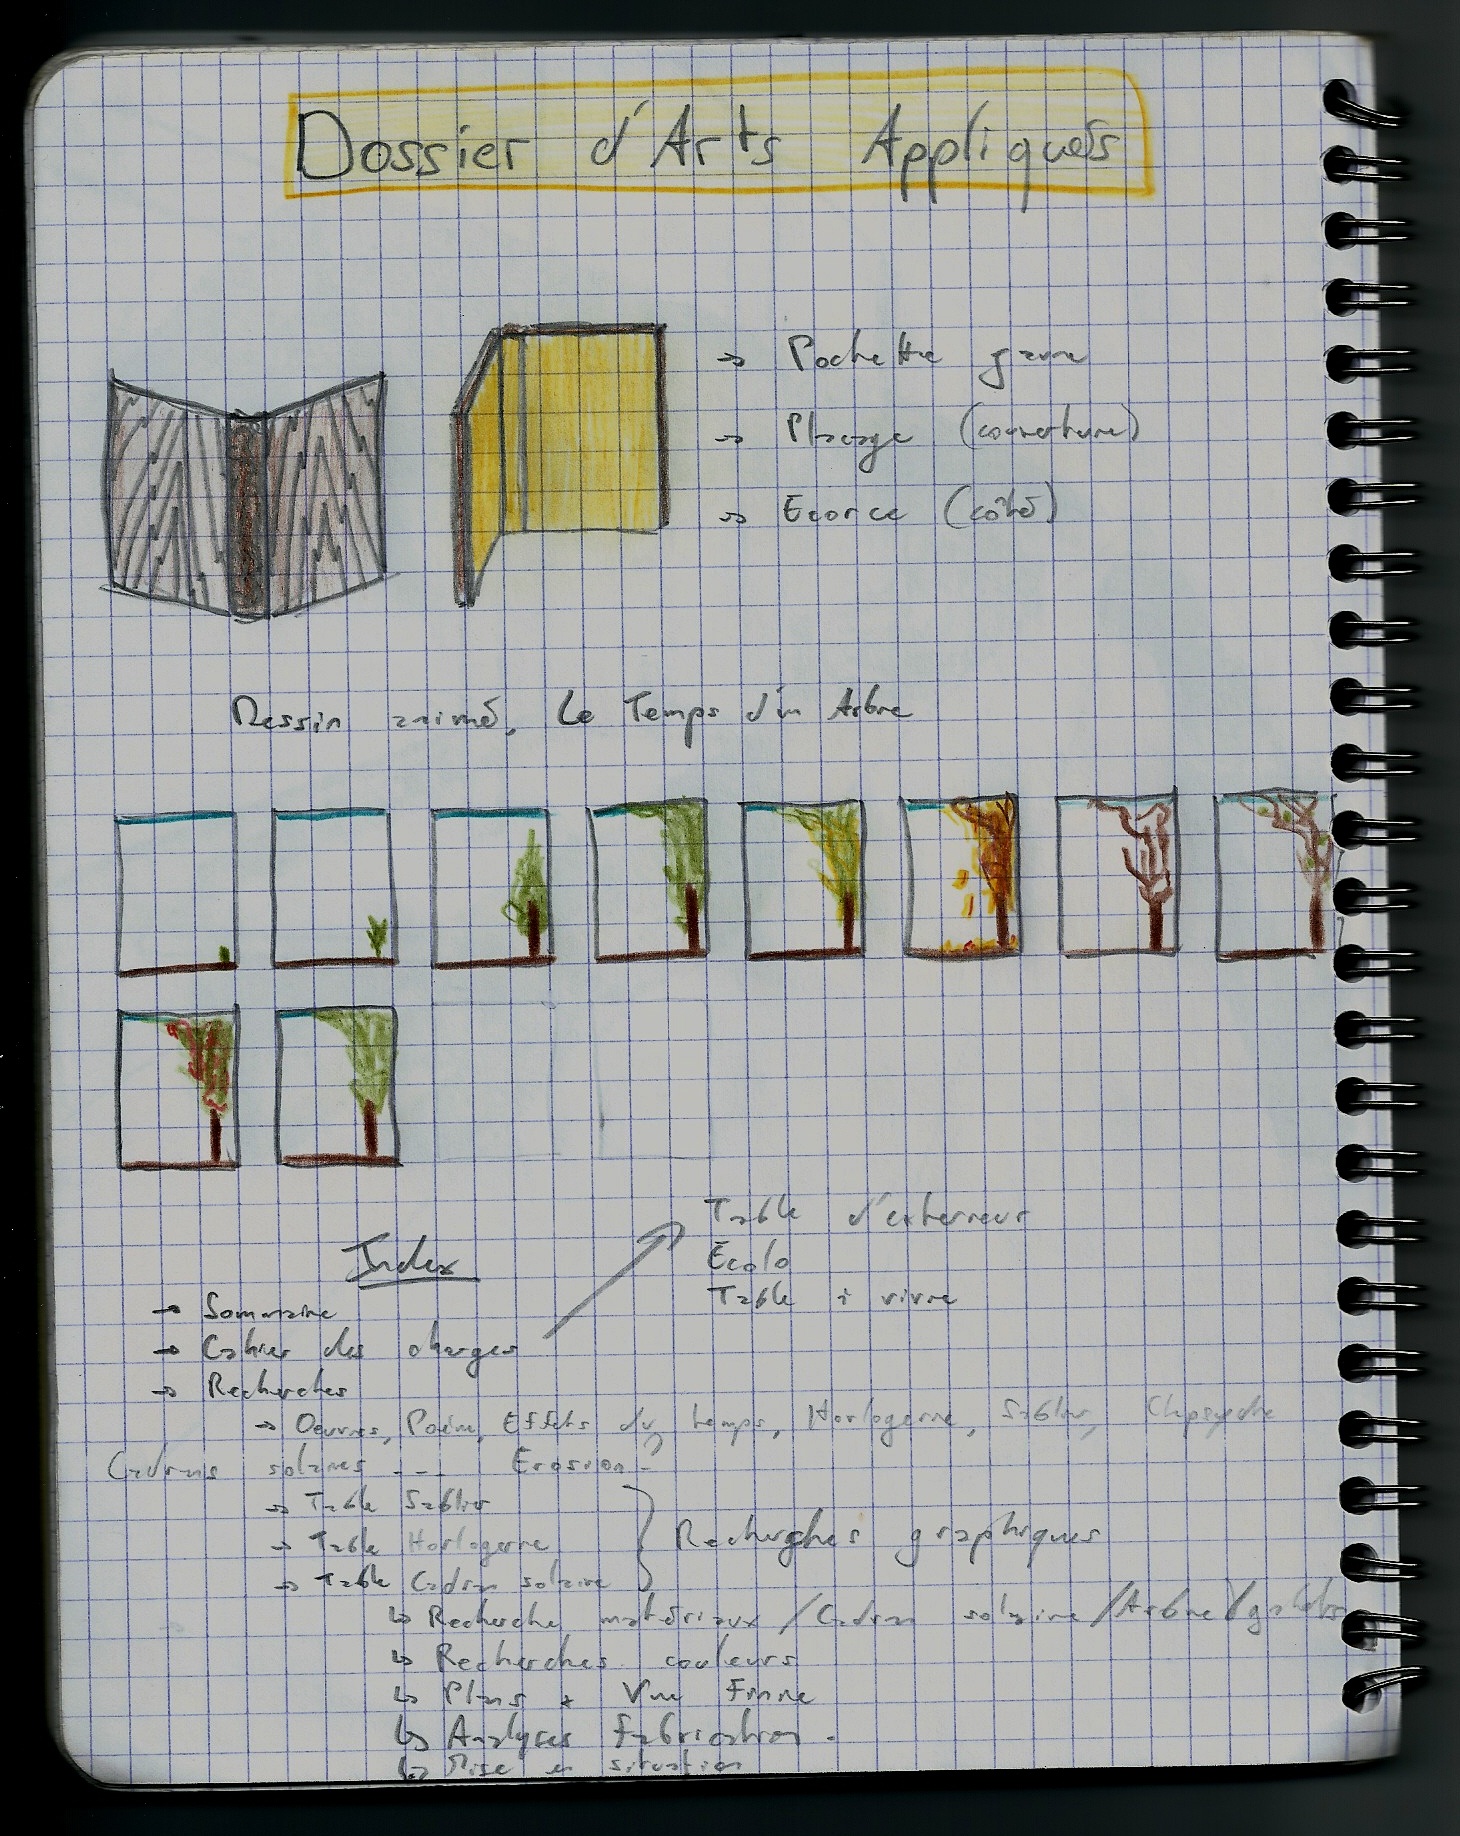 Dossier d'Arts Appliqués
→ Pochette jaune
→ Placage (couverture)
→ Ecorce (côté)
Dessin animé, Le Temps d'un Arbre
Table d'exterieur
Écolo
Table à vivre
Index
→ Sommaire
→ Cahier des charges
→ Recherches
→ Oeuvres, Poème, Effets du temps, Horlogerie, Sablier, Clepsydre
Cadrans solaires ---- Erosion -
→ Table Sablier
→ Table Horlogerie
→ Table Cadran solaire
Recherches graphiques
↳ Recherche matériaux / Cadran solaire / Arbre /
↳ Recherches couleurs
↳ Plans + Vue Finale
↳ Analyses fabrication.
↳ Mise en situation